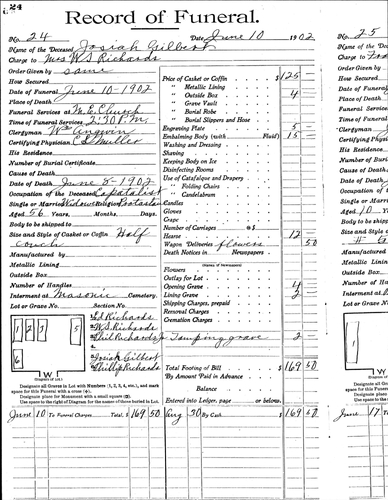 24
Record of Funeral.
No. 24 Date June 10 1902
Name of the Deceased Josiah Gilbert
Charge to Mrs W S Richards
Order Given by same
How Secured
Date of Funeral June 10-1902
Place of Death
Funeral Services M. E. Church
Time of Funeral Services 2:30 P.M.
Clergyman Wm Angwin
Certifying Physician C L Muller
His Residence
Number of Burial Certificate
Cause of Death
Date of Death June 8-1902
Occupation of the Deceased Capatalist
Single or Married Widower Religion Protastan
Aged 56 Years, Months, Days.
Body to be shipped to
Size and Style of Casket or Coffin Half
couch
Manufactured by
Metallic Lining
Outside Box
Number of Handles
Interment at Masonic Cemetery.
Lot or Grave No. Section No.
1 2 3 5
6
Ed Richards
W S Richards
Phil Richards Jr
Josiah Gilbert
Phillip Richards
W
(Diagram of Lot.)
Designate all Graves in Lot with Numbers (1, 2, 3, 4, etc.), and mark
space for this Funeral with a cross (+).
Designate place for Monument with a small square (□).
Use space to the right of Diagram for the name of those buried in Lot.
Price of Casket or Coffin $125 —
" Metallic Lining
" Outside Box 4
" Grave Vault
" Burial Robe
" Burial Slippers and Hose
Engraving Plate 5
Embalming Body (with Fluid) 15
Washing and Dressing
Shaving
Keeping Body on Ice
Disinfecting Rooms
Use of Catafalque and Drapery
" Folding Chairs
" Candelabrum
Candles
Gloves
Crape
Number of Carriages @ $
Hearse 12
Wagon Deliveries flowers 50
Death Notices in Newspapers
(Names of Newspapers)
Flowers
Outlay for Lot
Opening Grave 4
Lining Grave 2
Shipping Charges, prepaid
Removal Charges
Cremation Charges
Tamping grave 2
Total Footing of Bill $169 50
By Amount Paid in Advance
Balance
Entered into Ledger, page or below.
June 10 To Funeral Charges Total, $169 50 Aug 30 By Cash $169 50
No. 25
Name of the Deceased
Charge to
Order Given by
How Secured
Date of Funeral
Place of Death
Funeral Services
Time of Funeral
Clergyman
Certifying Physician
His Residence
Number of Burial
Cause of Death
Date of Death
Occupation of the
Single or Married
Aged 10 Years
Body to be shipped
Size and Style of
Manufactured by
Metallic Lining
Outside Box
Number of Handles
Interment at
Lot or Grave No.
(Diagram of Lot.)
Designate all Graves
space for this Funeral
Designate place for
Use space to the right
June 17 To